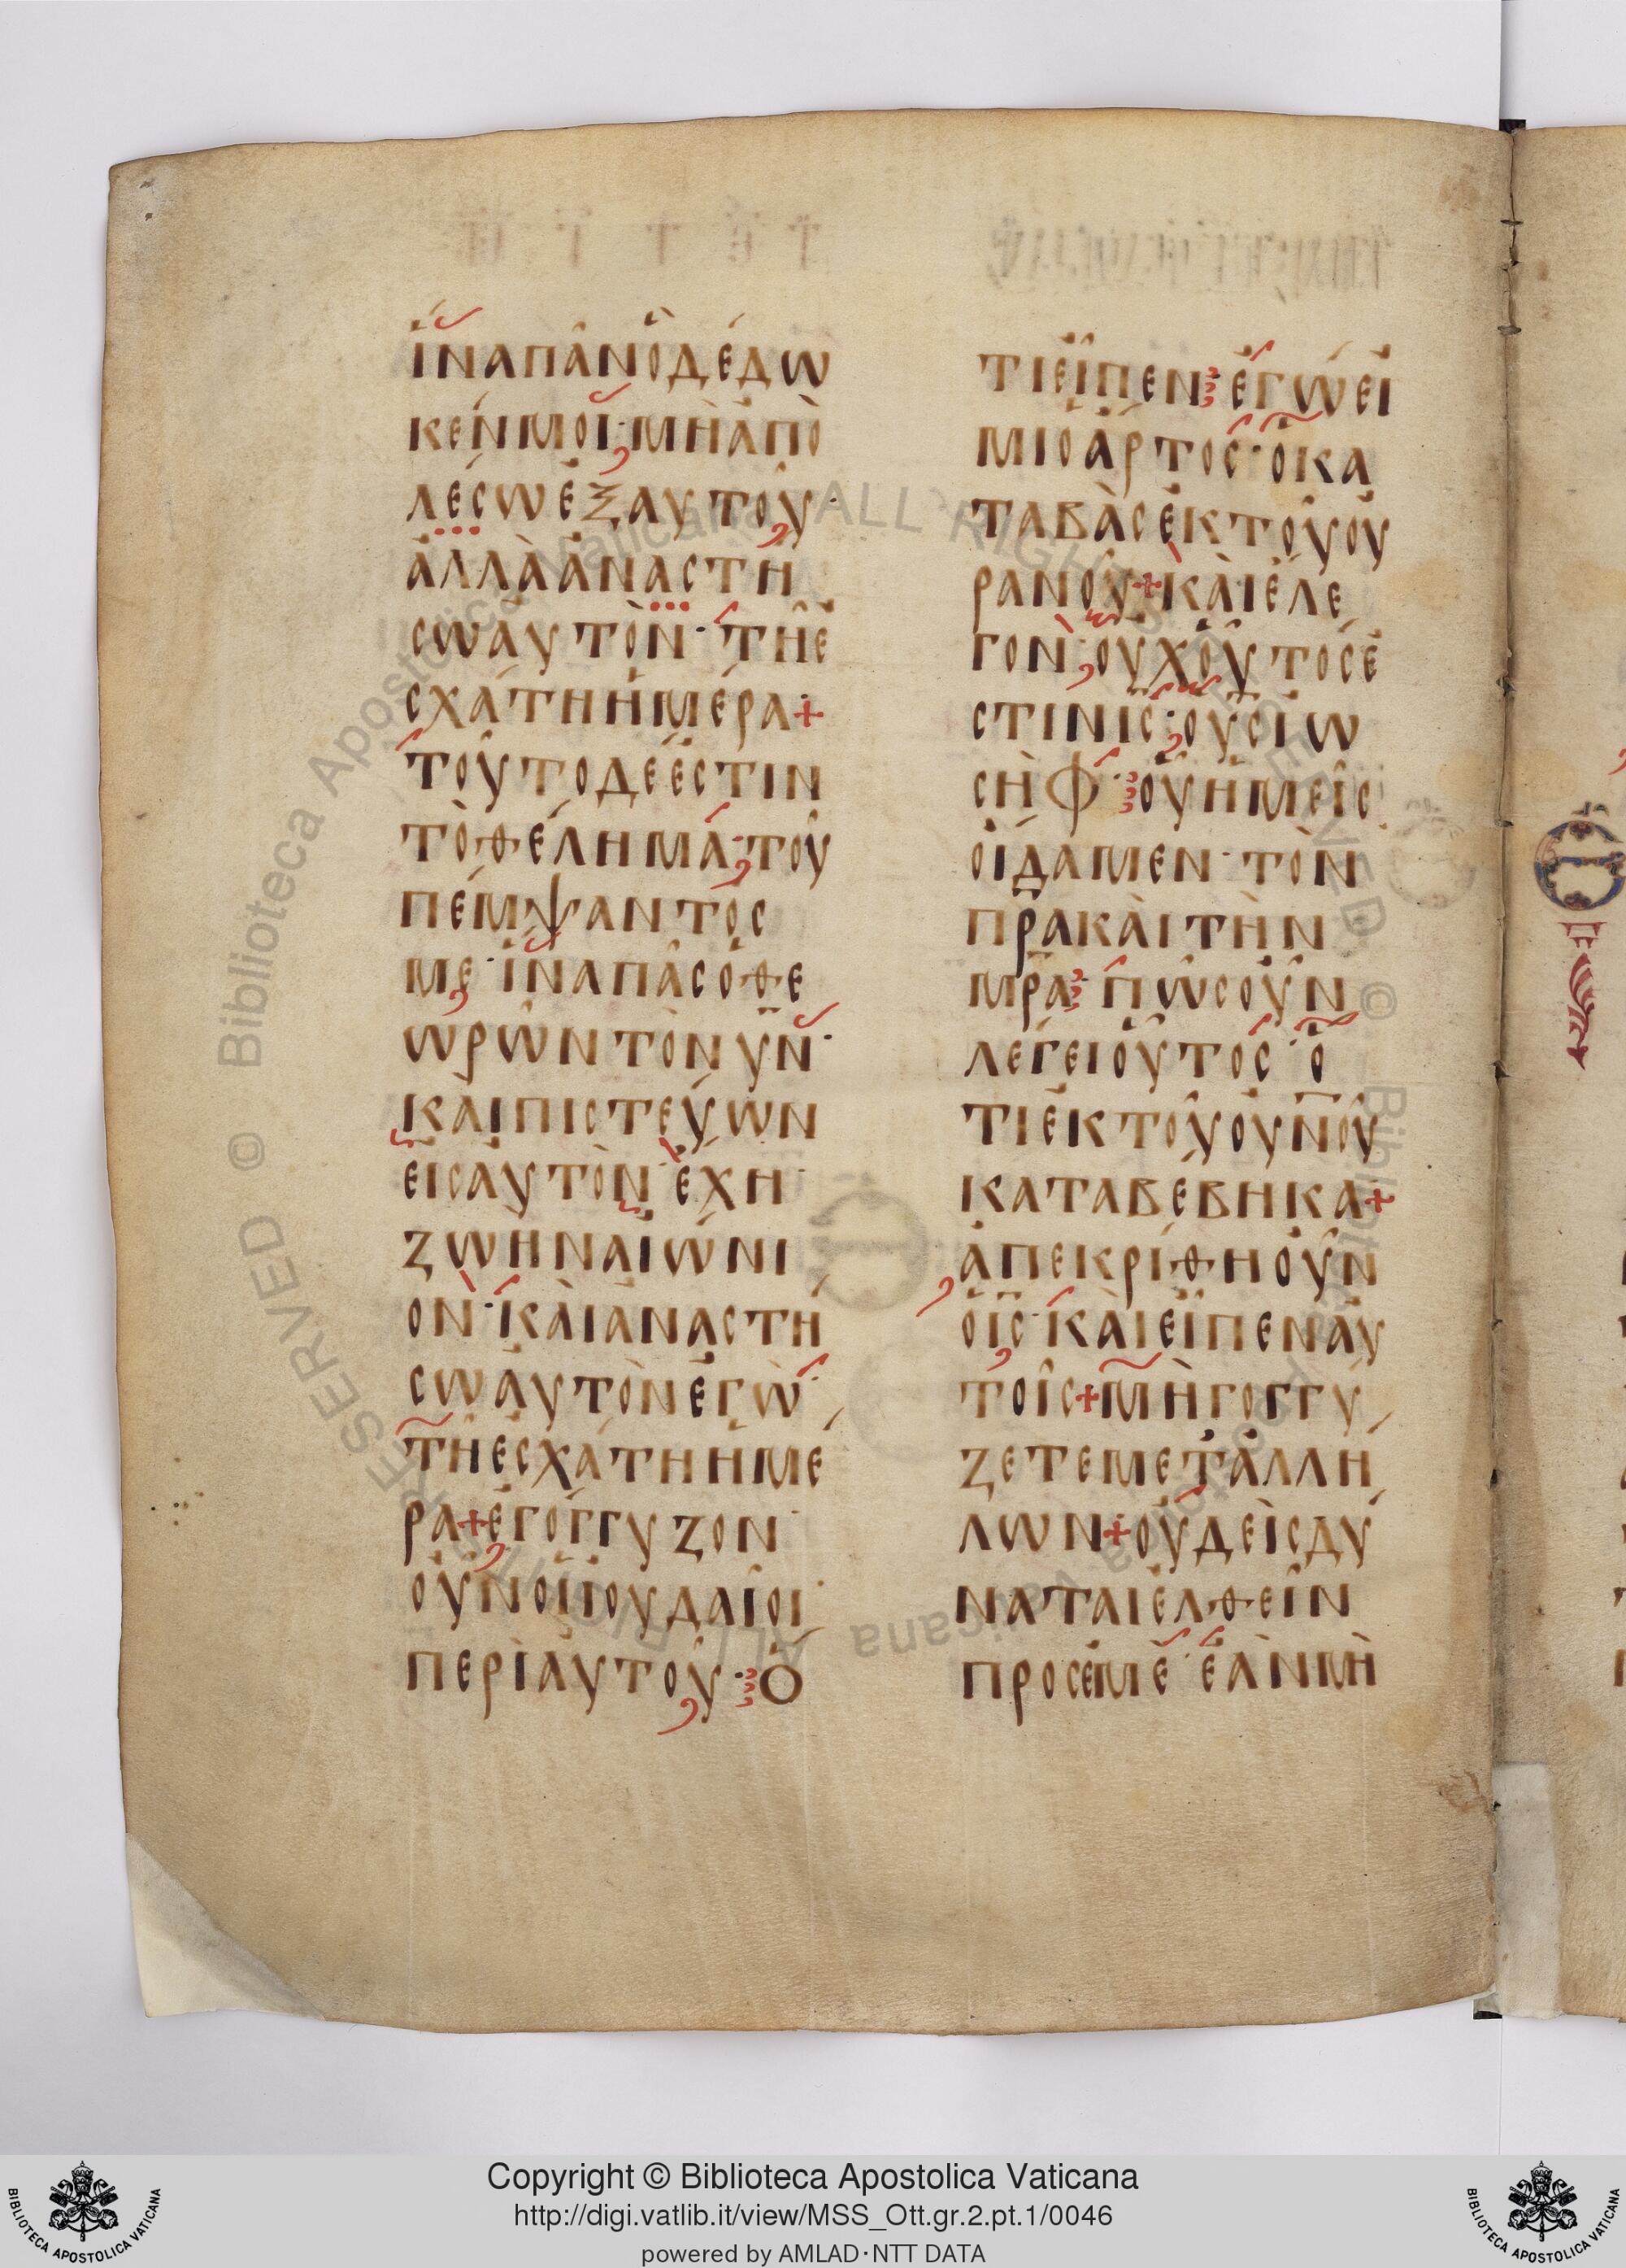 ἵνα πᾶν ὃ δέδω
κέν μοι· μὴ ἀπὸ
λέσω ἐξ αὐτοῦ·
ἀλλὰ ἀναστή
σω αὐτὸν· τῆ ἐ
σχάτη ἡμέρα+
τοῦτο δέ ἐστιν
τὸ θέλημα· τοῦ
πέμψαντος
με· ἵνα πᾶς ὁ θε
ωρῶν τὸν υ̅ν̅·
καὶ πιστεύων
εἰς αὐτὸν· ἔχη
ζωὴν αἰώνι
ον· καὶ ἀναστή
σω αὐτὸν ἐγὼ·
τῆ ἐσχάτη ἡμέ
ρα+ ἐγόγγυζον
οὖν οἱ ἰουδαῖοι·
περὶ αὐτοῦ· ὅ
τι εἶπεν· ἐγώ εἰ
μι ὁ ἄρτος· ὁ κα
ταβὰς ἐκ τοῦ οὐ
ρανοῦ+ καὶ ἔλε
γον· οὐχ οὗτος ἐ
στιν ι̅ς̅· ὁ υ̅ς̅ ἰω
σὴφ· οὗ ἡμεῖς
οἴδαμεν· τὸν
π̅ρ̅α̅ καὶ τὴν
μ̅ρ̅α̅· πῶς οὖν
λέγει οὗτος· ὅ
τι ἐκ τοῦ ο̅υ̅ν̅ο̅υ̅
καταβέβηκα+
ἀπεκρίθη οὖν
ὁ ι̅ς̅· καὶ εἶπεν αὐ
τοῖς+ μὴ γογγύ
ζετε μετ ἀλλή
λων+ οὐδεὶς δύ
ναται ἐλθεῖν
πρός ἐμέ· ἐὰν μὴ
Copyright © Biblioteca Apostolica Vaticana
http://digi.vatlib.it/view/MSS_Ott.gr.2.pt.1/0046
powered by AMLAD·NTT DATA
BIBLIOTECA APOSTOLICA VATICANA
BIBLIOTECA APOSTOLICA VATICANA